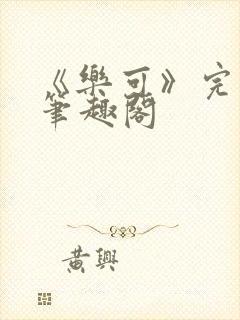 《樂可》完
筆趣閣
黃興